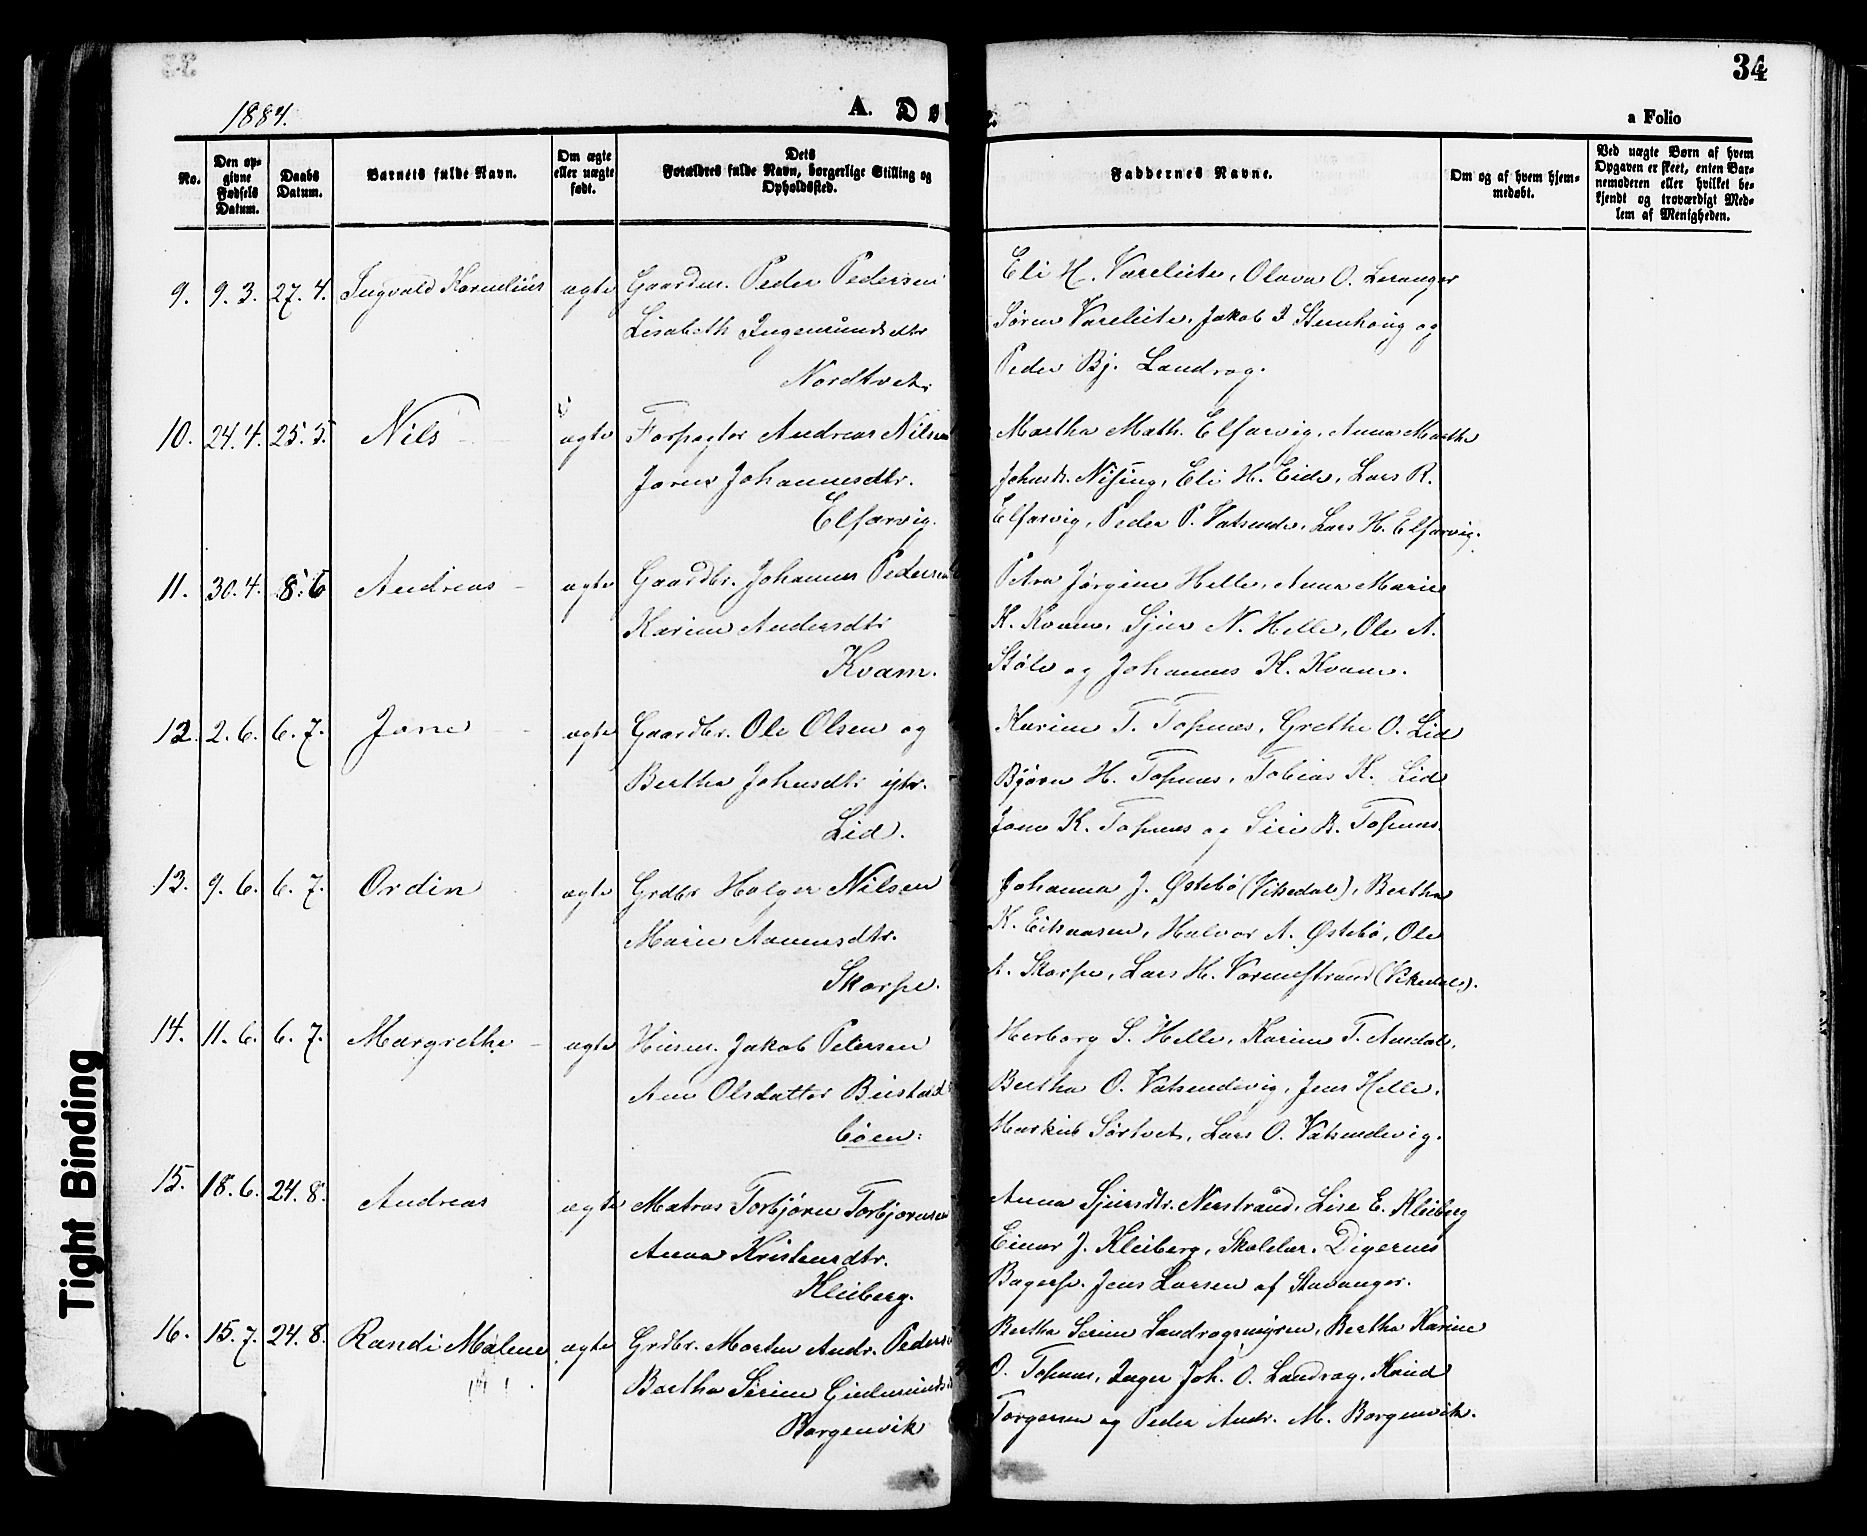 34
1884.
A. Døb
a Folio
No.
Den op-
givne
Fødsels
Datum.
Daabs
Datum.
Barnets fulde Navn.
Om ægte
eller uægte
født.
Dets
Forældres fulde Navn, borgerlige Stilling og
Opholdssted.
Faddernes Navne.
Om og af hvem hjem-
medøbt.
Ved uægte Børn af hvem
Opgaven er skeet, enten Bar-
nemoderen eller hvilket be-
kjendt og troværdigt Med-
lem af Menigheden.
9. 9.3. 27.4. Ingvald Kornelius ægte Gaardm. Peder Pedersen
Lisabeth Ingemundsdtr
Nordtveit
Eli H. Vareleite, Olava O. Leranger
Søren Vareleite, Jakob I Stenhoug og
Peder Bj. Landrag.
10. 24.4. 25.5. Nils ægte Forpagter Andreas Nilsen
Johannesdtr.
Elfarvig.
Martha Math. Elfarvig, Anna Marthe
Johnsdt. Eli H. Eide, Lars R.
Elfarvig, Peder P. Vatsende, Lars H. Elfarvig.
11. 30.4. 8.6 Andreas ægte Gaardbr. Johannes Pedersen
Karine Andersdtr
Kvam.
Petra Jørgine Helle, Anna Marie
K. Kvam, Sjur N. Helle, Ole A.
Støle og Johannes K. Kvam.
12. 2.6. 6.7. Jone ægte Gaardbr. Ole Olsen og
Bertha Johnsdtr
Lid.
Karine T. Topnes, Grethe O. Lid
Bjørn H. Topnes, Tobias K. Lid
Jone K. Topnes og Siri B. Topnes.
13. 9.6. 6.7. Ordin ægte Grdbr Holger Nilsen
Marie Aanensdtr.
Skorpe.
Johanna J. Østebø (Vikedal), Bertha
K. Halvor A. Østebø, Ole
A. Skorpe, Lars H. Vormestrand (Vikedal).
14. 11.6. 6.7. Margrethe ægte Husm. Jakob Petersen
Ane Olsdatter
bøen.
Herborg S. Helle, Karine T. Aasdal,
Bertha O. Vatsendvig, Jens Helle,
Sørtvet, Lars O. Vatsendevig.
15. 18.6. 24.8. Andreas ægte Matros Torbjørn Torbjørnsen
Anna Kristensdtr.
Kleiberg.
Anna Sjursdtr. Nerstrand, Lise E. Kleiberg
Einar J. Kleiberg, Skolelær. Digernes
Jens Larsen af Stavanger.
16. 15.7. 24.8. Randi Malene ægte Grdbr. Morten Andr. Peders
Bertha Serine
Borgenvik
Bertha Serine Landragsmyren, Bertha Karine
O. Topnes, Inger Joh. O. Landrag, Knud
Torgersen og Peder Andr. M. Borgenvik.
Tight Binding